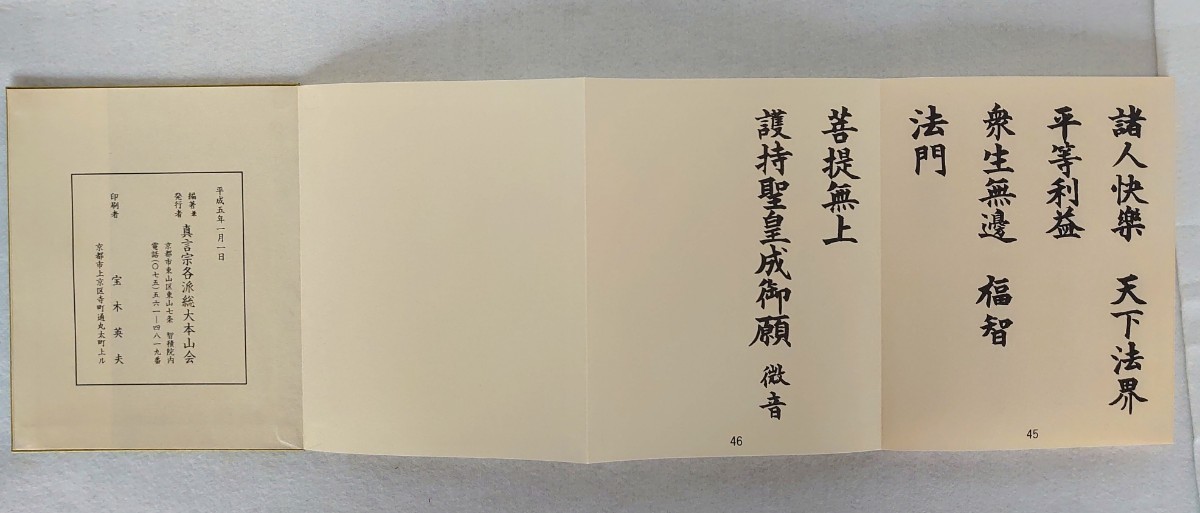 諸人快樂　天下法界
平等利益
衆生無邊　福智
法門
45
菩提無上
護持聖皇成御願　微音
46
平成五年一月一日
編著並
発行者　真言宗各派総大本山会
京都市東山区東山七条　智積院内
電話(〇七五)五六一―四八一九番
印刷者　宝木英夫
京都市上京区寺町通丸太町上ル